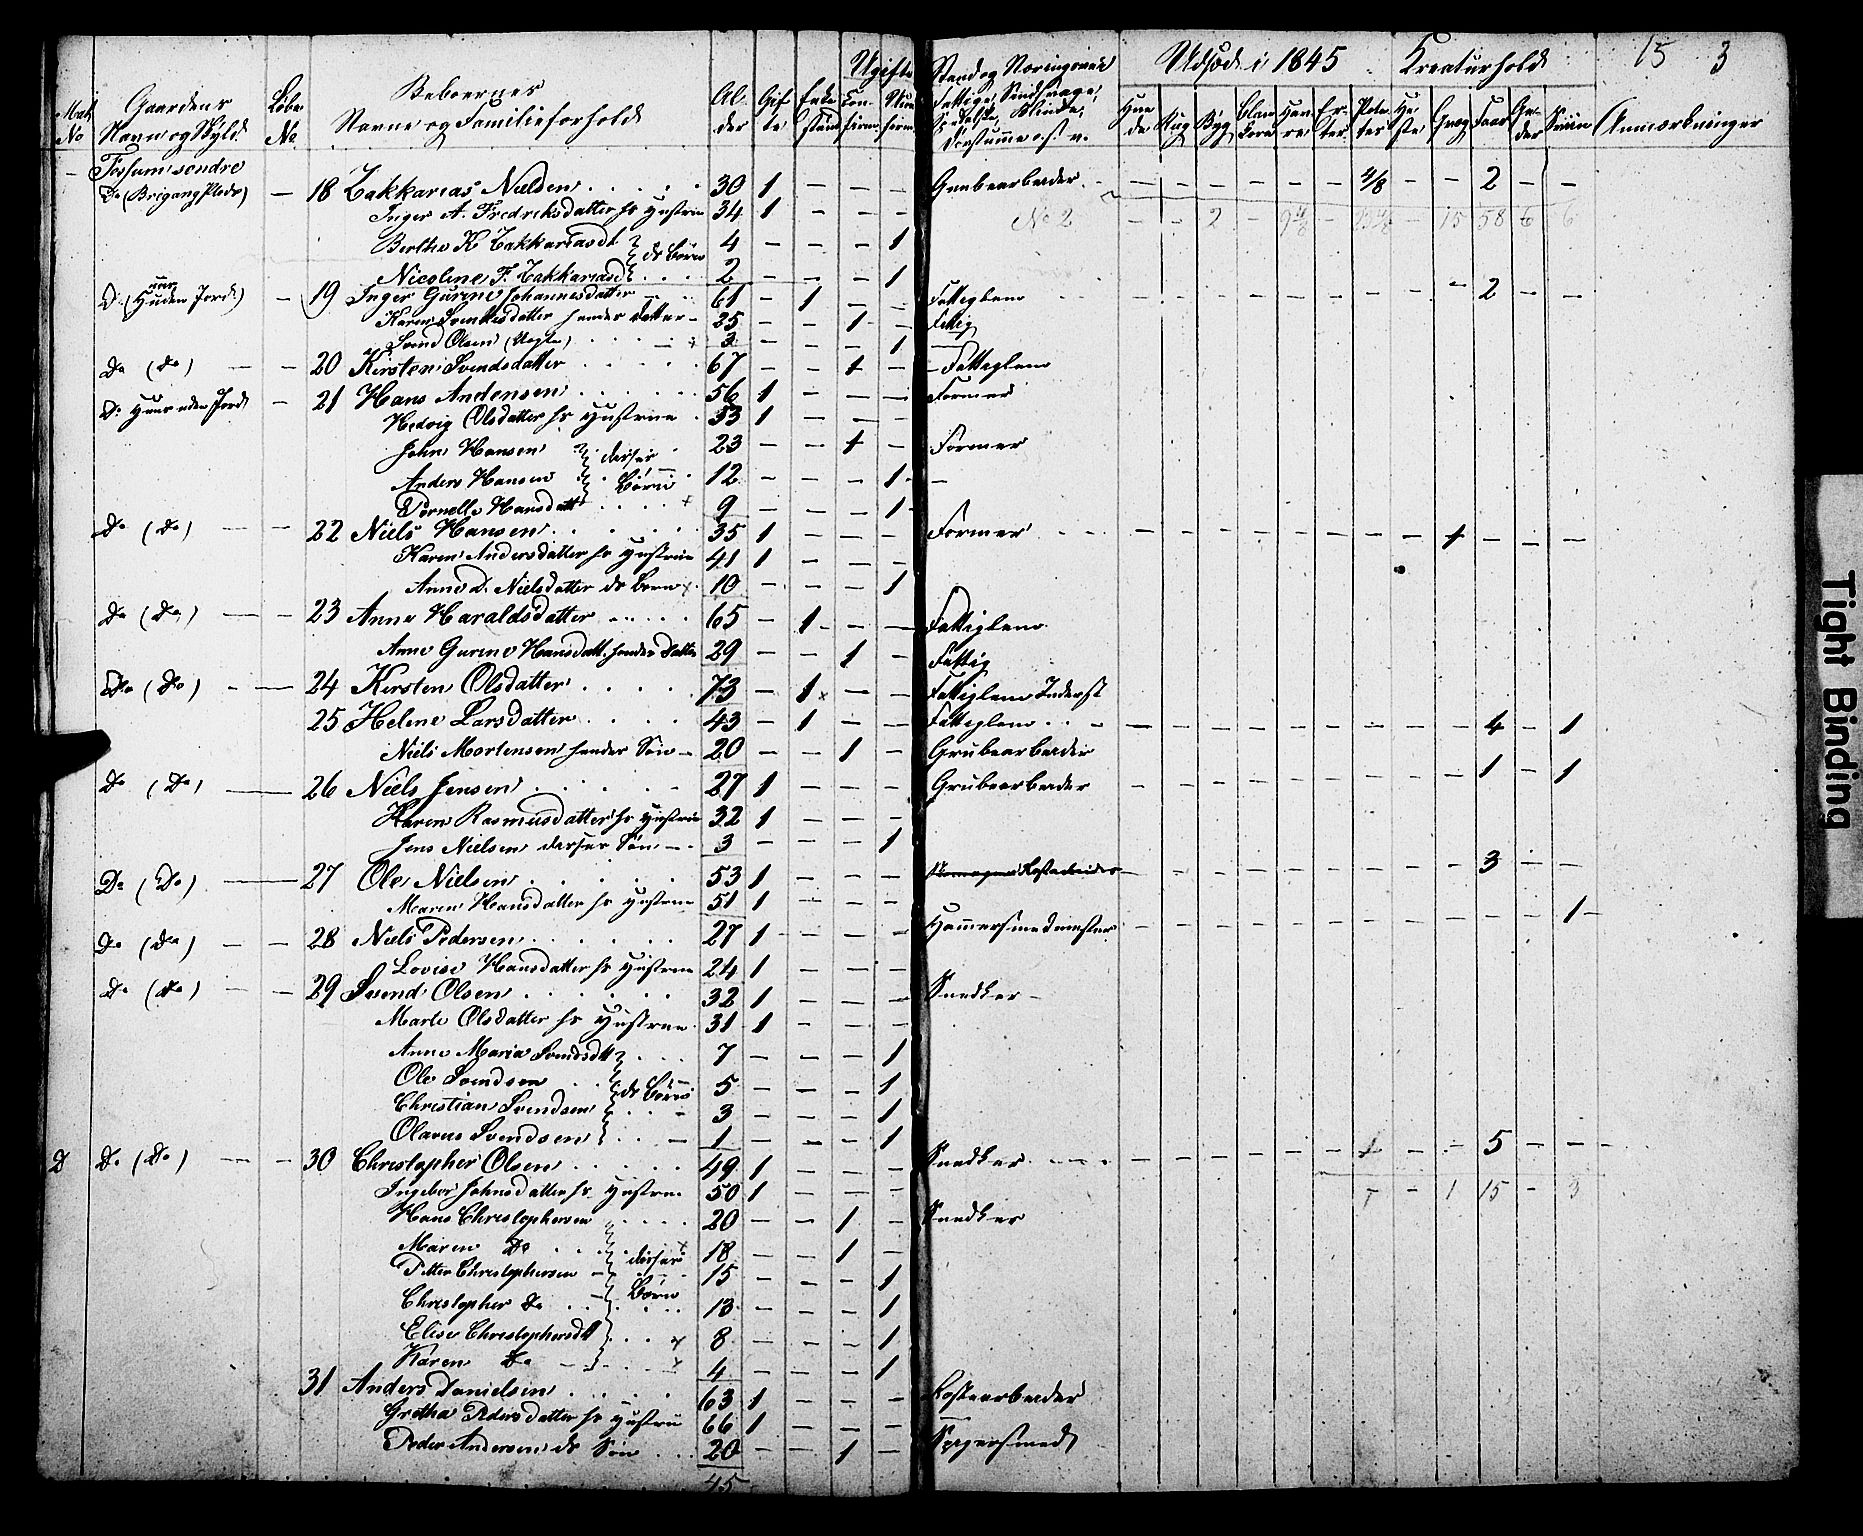 Mat. No
Gaardens Navn og Skyld
Løbe No
Beboernes Navne og Familieforhold
Al der
Gif te
Enke stand
Ugifte
Stand og Næringsvei
Udsæd i 1845
Kreaturhold
15 3
Hve de
Rug
Byg
Hav re
Er ter
Pote tes
He ste
Qvæg
Faar
Ge der
Sviin
Anmærkninger
Fossum søndre
Do (Brigang Plads) 18 Zakkarias Nielsen 30 1 Grubearbeider 4/8 2
Inger A. Fredriksdatter hs Hustrue 34 1 No 2 2 15 58 6 6
Berthe K Zakkariasdt 4 1
ds Børn
Nicoline F. Zakkariasd 2 1
Do (Huus uden Jord) 19 Inger Gurine Johannesdatter 61 1 Fattiglem 2
Karen Svendsdatter hendes Datter 25 1 Fattig
Svend Olsen 3 1
Do (Do) 20 Kirsten Svendsdatter 67 1 Fattiglem
Do Huus uden Jord 21 Hans Andersen 56 1 Former
Hedvig Olsdatter hs Hustrue 53 1
John Hansen 23 1 Former
deres Børn
Anders Hansen 12 1
Pernelle Hansdatt 9 1
Do (Do) 22 Niels Hansen 35 1 Former 1
Karen Andersdatter hs Hustrue 41 1
Anne D. Nielsdatter ds Børn 10 1
Do (Do) 23 Anne Haraldsdatter 65 1 Fattiglem
Anne Gurine Hansdatt. hendes Datter 29 1 Fattig
Do (Do) 24 Kirsten Olsdatter 73 1 Fattiglem Inderst
25 Helene Larsdatter 43 1 Fattiglem 4 1
Niels Mortensen hendes Søn 20 1 Grubearbeider
Do (Do) 26 Niels Jensen 27 1 Grubearbeider 1 1
Karen Rasmusdatter hs Hustrue 32 1
Jens Nielsen deres Søn 3 1
Do (Do) 27 Ole Nielsen 53 1 Rostarbeider 3
Maren Hansdatter hs Hustrue 51 1
Do (Do) 28 Niels Pedersen 27 1 Hammersmedmester 1
Lovise Hansdatter hs Hustrue 24 1
Do (Do) 29 Svend Olsen 32 1 Snedker
Marte Olsdatter hs Hustrue 31 1
Anne Maria Svendsdtt 7 1
Ole Svendsen 5 1
ds Børn
Christian Svendsen 3 1
Olavus Svendsen 1 1
D Do (Do) 30 Christopher Olsen 49 1 Snedker 1 5
Ingebor Johnsdatter hs Hustrue 50 1 1 15 3
Hans Christophersen 20 1 Snedker
Maren Do 18 1
deres Børn
Petter Christophersen 15 1
Christopher Do 13 1
Elise Christophersdtt 8 1
Karen Do 4 1
31 Anders Danielsen 63 1 Rostearbeider
Grethe Pedersdatter hs Hustru 66 1
Peder Andersen ds Søn 20 1
45
Tight Binding